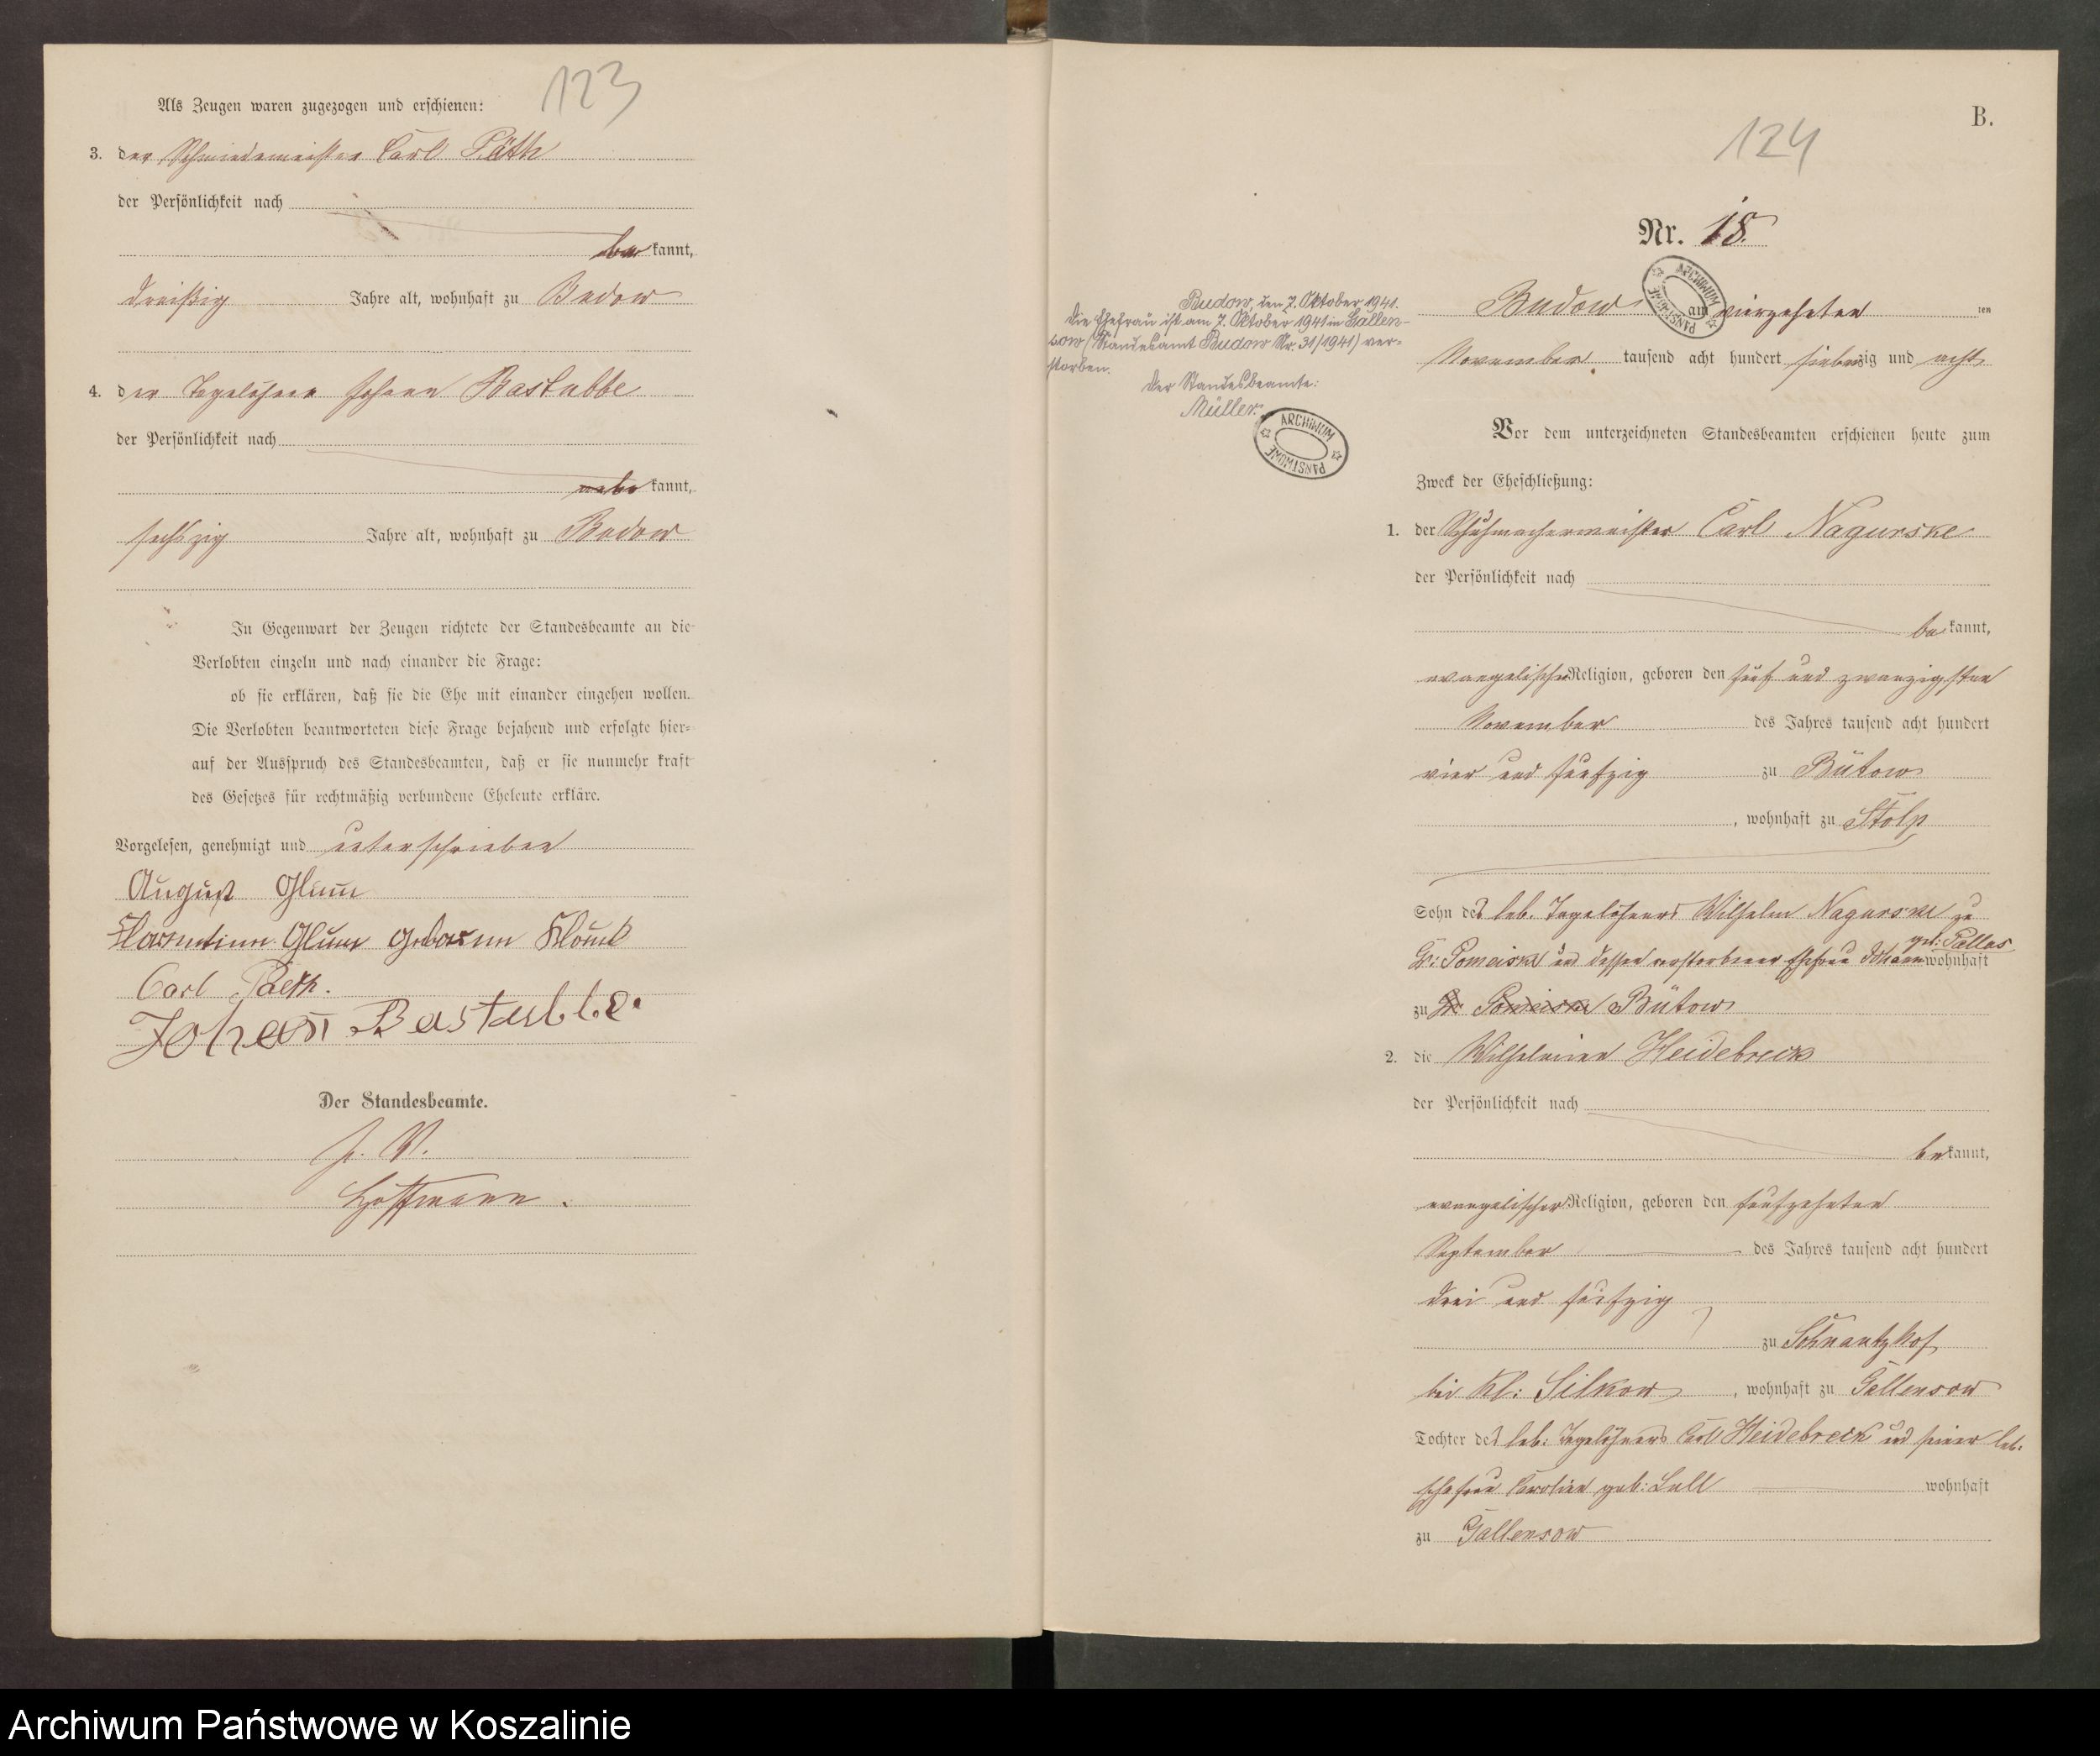 123
Als Zeugen waren zugezogen und erschienen:
3. der Schmiedemeister Carl Päth
der Persönlichkeit nach
bekannt,
dreißig Jahre alt, wohnhaft zu Budow
4. der Tagelöhner Johann Bastubbe
der Persönlichkeit nach
kannt,
sechszig Jahre alt, wohnhaft zu Budow
In Gegenwart der Zeugen richtete der Standesbeamte an die
Verlobten einzeln und nach einander die Frage:
ob sie erklären, daß sie die Ehe mit einander eingehen wollen.
Die Verlobten beantworteten diese Frage bejahend und erfolgte hier-
auf der Ausspruch des Standesbeamten, daß er sie nunmehr kraft
des Gesetzes für rechtmäßig verbundene Eheleute erkläre.
Vorgelesen, genehmigt und unterschrieben
August Glum
Glum geborene
Carl Paeth.
Johann Bastubbe.
Der Standesbeamte.
J. V.
Hoffmann.
B.
124
Nr. 18.
Budow am vierzehnten ten
November tausend acht hundert siebenzig und acht
Budow, den 7. Oktober 1941.
Die Ehefrau ist am 7. Oktober 1941 in Gallen-
sow (Standesamt Budow Nr. 31/1941) ver-
storben.
Der Standesbeamte:
Müller.
ARCHIWUM PAŃSTWOWE
ARCHIWUM PAŃSTWOWE
Vor dem unterzeichneten Standesbeamten erschienen heute zum
Zweck der Eheschließung:
1. der Schuhmachermeister Carl Nagurske
der Persönlichkeit nach
bekannt,
evangelischer Religion, geboren den fünf und zwanzigsten
November des Jahres tausend acht hundert
vier und fünfzig zu Bütow
, wohnhaft zu Stolp
Sohn des leb. Tagelöhners Wilhelm Nagurske zu
geb: Pallas
Gr: Pomeiske und dessen verstorbener Ehefrau Johann wohnhaft
zu Gr Pomeiske Bütow
2. die Wilhelmine Heidebreck
der Persönlichkeit nach
bekannt,
evangelischer Religion, geboren den fünfzehnten
September des Jahres tausend acht hundert
drei und fünfzig
zu Schwantzhof
bei Kl: Silkow, wohnhaft zu Gallensow
Tochter des leb: Tagelöhners Carl Heidebreck und seiner leb.
Ehefrau Caroline geb: Lall wohnhaft
zu Gallensow
Archiwum Państwowe w Koszalinie